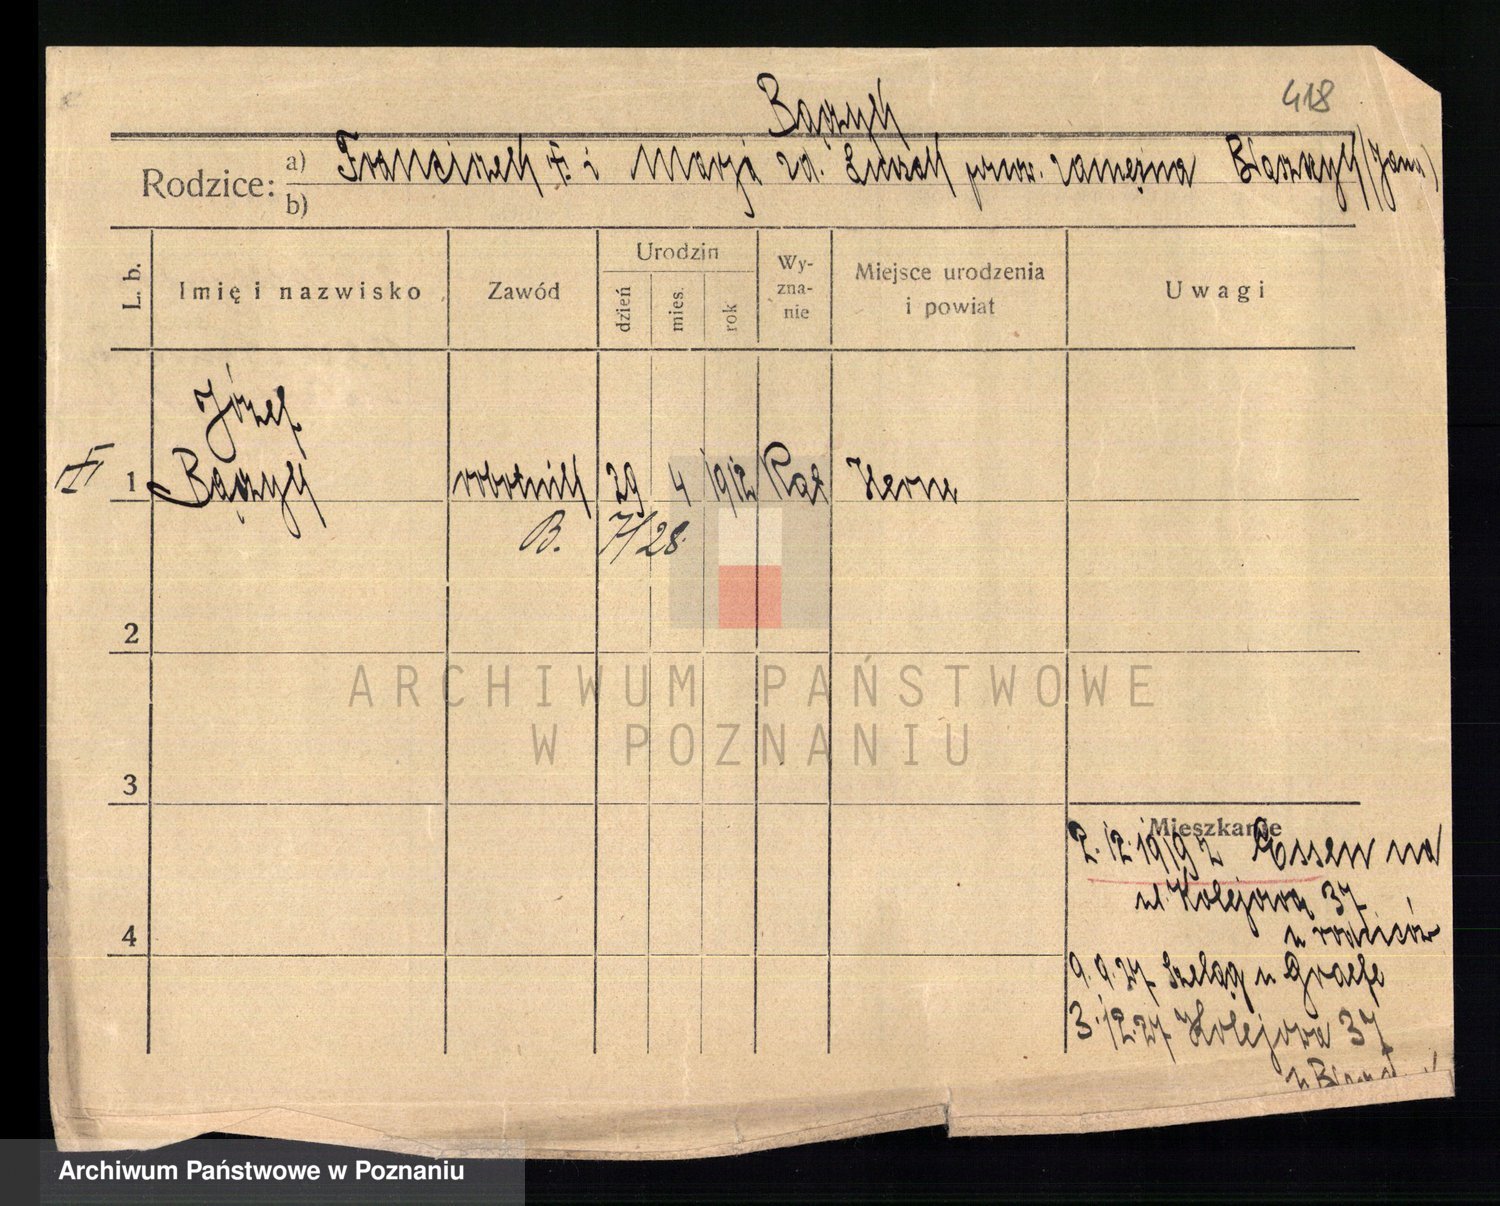 418
Bączyk
Rodzice: a) Franciszek i Marja zd. powt. zamężna Błaszczyk (Jana)
b)
L. b.
Imię i nazwisko
Zawód
Urodzin
dzień
mies.
rok
Wy-
zna-
nie
Miejsce urodzenia
i powiat
Uwagi
Józef
1 Bączyk robotnik 29 4 1912 Kat Herne
B. 7/28
2
ARCHIWUM PAŃSTWOWE
W POZNANIU
3
Mieszkanie
2.12.1919 z Essen na
ul. Kolejową 37
u rodziców
4
9.9.27 Szeląg u Graefe
3.12.27 Kolejowa 37
u
Archiwum Państwowe w Poznaniu